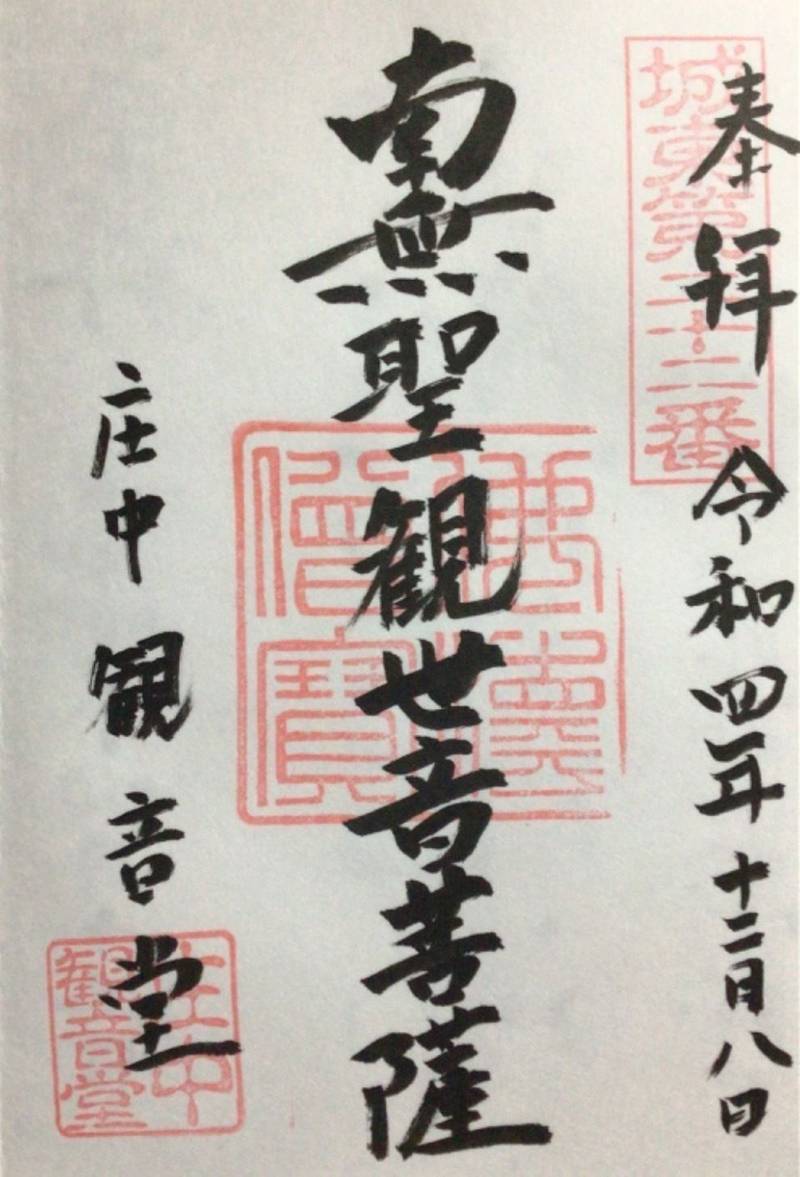 奉拝 令和四年十二月八日
城東第二十二番
南無聖観世音菩薩
佛法僧寶
庄中観音堂
庄中観音堂